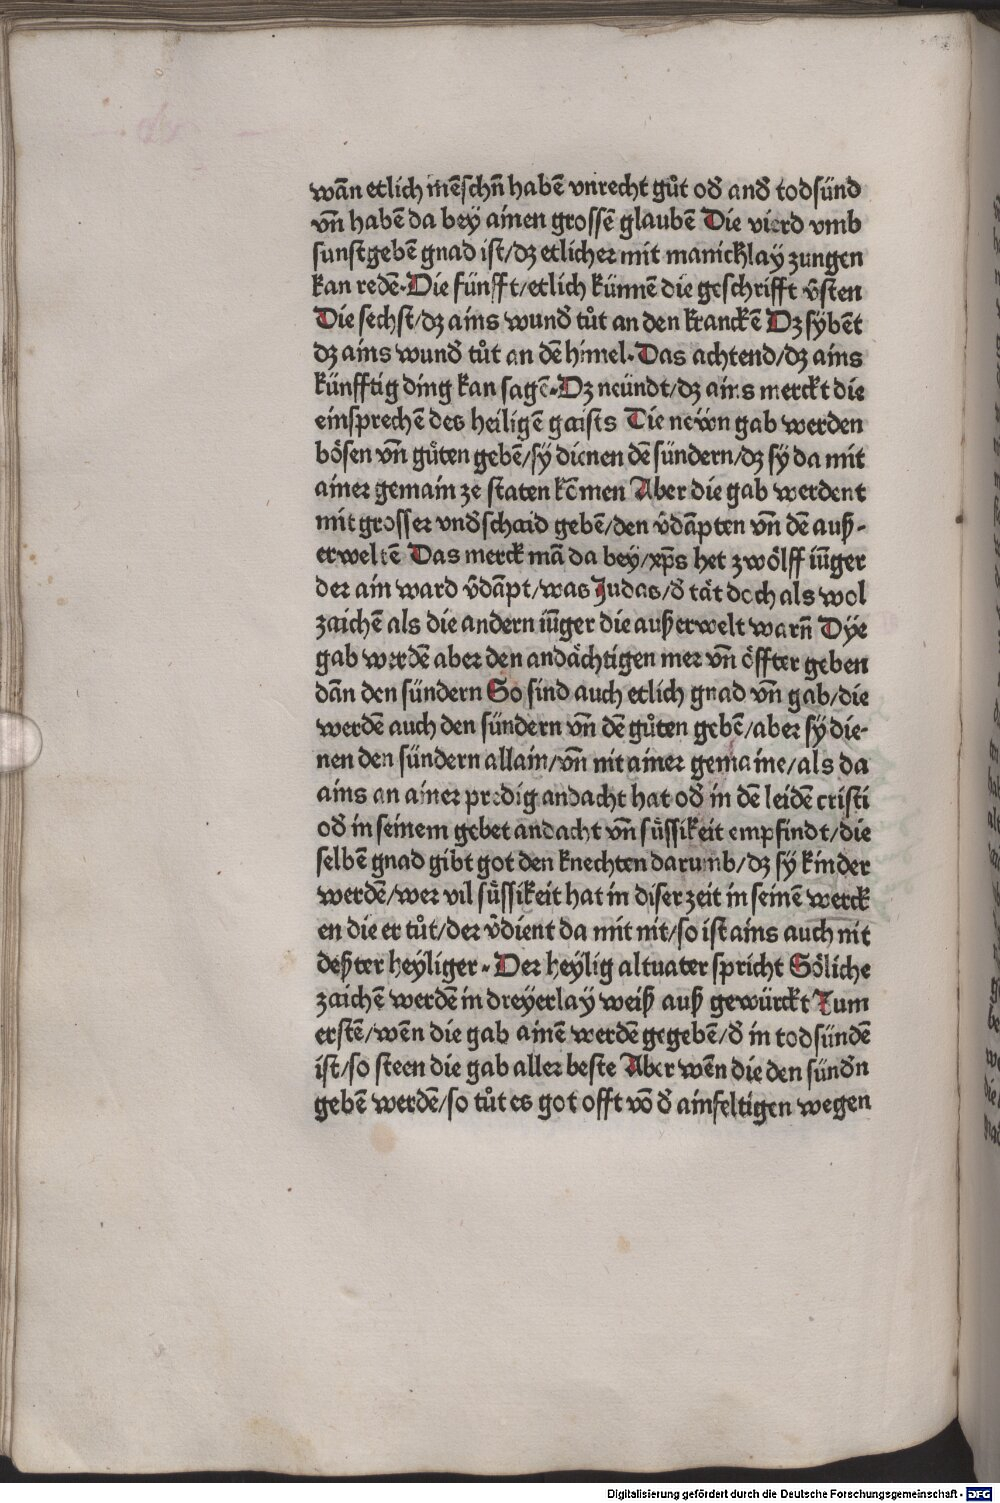 wān etlich mēschñ habē vnrecht gůt oď anď todsünd
vñ habē da bey ainen grossē glaubē Die vierd vmb
sunst gebē gnad ist/dz etlicher mit manichlay zungen
kan redē·Die fünfft/etlich künnē die geschrifft v̄sten
Die sechst/dz ains wunď tůt an den kranckē Dz sybēt
dz ains wunď tůt an dē himel·Das achtend/dz ains
künfftig ding kan sagē·Dz neündt/dz ains merckt die
einsprechē des heiligē gaists Die neẅn gab werden
bösen vñ gůten gebē/sy dienen dē sündern/dz sy da mit
ainer gemain ze staten kōmen Aber die gab werdent
mit grosser vnďschaid gebē/den v̄dāpten vñ dē auß-
erweltē Das merck mā da bey/xp̄s het zwölff iūger
der ain ward v̄dāpt/was Judas/ď tät doch als wol
zaichē als die andern iūger die außerwelt warñ Dye
gab werdē aber den andächtigen mer vñ öffter geben
dān den sündern So sind auch etlich gnad vñ gab/die
werdē auch den sündern vñ dē gůten gebē/aber sy die-
nen den sündern allain/vñ nit ainer gemaine/als da
ains an ainer predig andacht hat oď in dē leidē cristi
oď in seinem gebet andacht vñ süssikeit empfindt/die
selbē gnad gibt got den knechten darumb/dz sy kinder
werdē/wer vil süssikeit hat in diser zeit in seinē werck
en die er tůt/der v̄dient da mit nit/so ist ains auch nit
deßter heyliger·Der heylig altuater spricht Söliche
zaichē werdē in dreyerlay weiß auß gewürckt Zum
erstē/wēn die gab ainē werdē gegebē/ď in todsündē
ist/so steen die gab aller beste Aber wēn die den sünďn
gebē werdē/so tůt es got offt vō ď ainfeltigen wegen
Digitalisierung gefördert durch die Deutsche Forschungsgemeinschaft - DFG